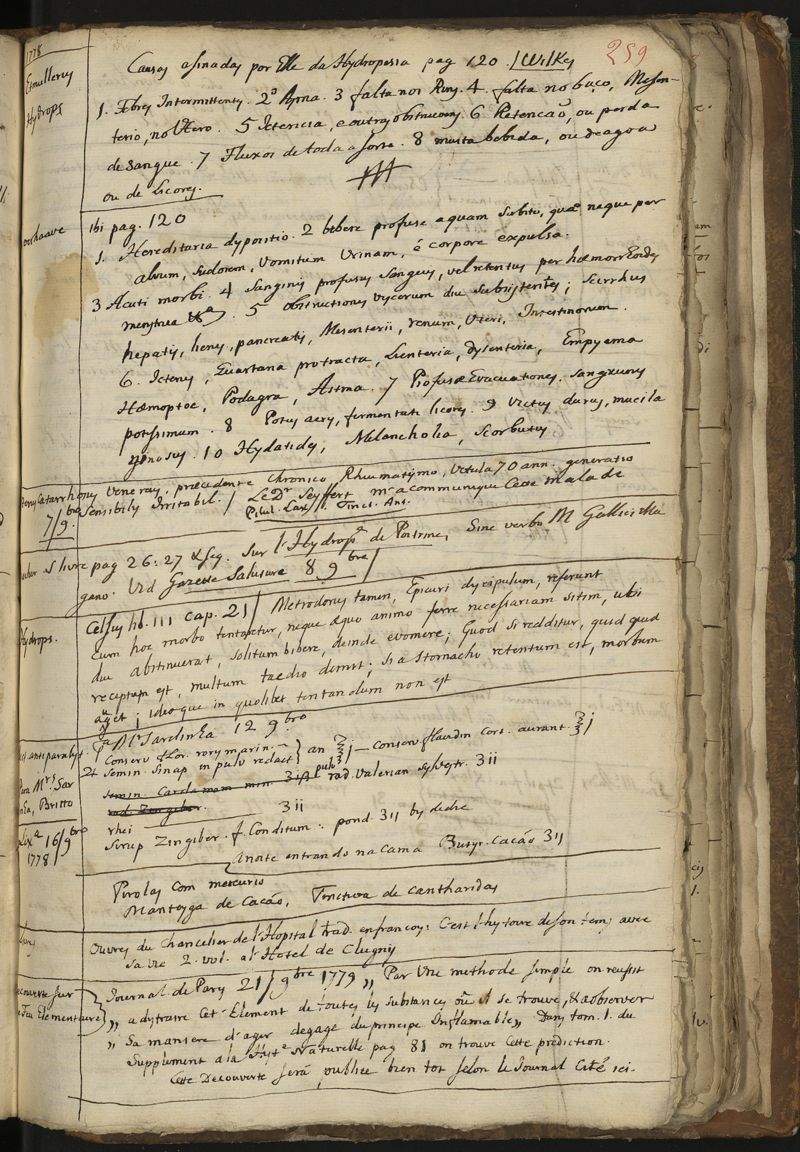 259
1778
Causas asinadas por Elle da Hydropesia pag 120. / Wilkes
Etmullerus
Hydrops
1. Febres Intermittens. 2º Asma. 3 falta nos Rins. 4. falta no baço, Mesen-
terio, no Utero. 5 Ictericia, e outras obstrucoens. 6 Retencaõ, ou perda
de Sangue. 7 Fluxos de toda a sorte. 8 muita bebida, ou de agoa
ou de Licores.
oerhaave
ibi pag. 120
1. Hereditaria dyspositio. 2 bibere profuse aquam subito, quæ neque per
alvum, sudorem, vomitum Urinam, é corpore expulsa.
3 Acuti morbi. 4 Sanginis profusus Sangus, vel retentus per hœmorroides
menstrua. 5 Obstructiones Viscerum diu Subsistentes; Scirrhus
hepatis, lienis, pancreatis, Mesenterii, renum, Uteri, Intestinorum.
6. Icterus, Quartana protracta, Lienteria, dysenteria, Empyema
Hœmoptoe, Podagra, Astma. 7 Profusæ Evacuationes. Sanguinis
potissimum. 8 Potus acris, fermentati licores. 9 Victus durus, mucila
ginosus. 10 Hydatides, Melancholia, Scorbutus
Catarrhonus Venereus, præcedente Chronico, Rheumatismo, Vetula 70 ann. generatio
7/9.bre Sensibilis Irritabil. / Le Dr Seyffert m'a communique Cese malade
Pilul. Tinct. Ant.
s livre pag 26. 27 & seq. Sur l'Hydrops.e de Poitrine, Sine verbo M
gano. Vid Gazette Salutaire 8 9bre /
Hydrops.
Celsus lib. III cap. 21 / Metrodorus tamen, Epicuri dyscipulum, referunt
Cum hoc morbo tentaretur, neque æquo animo ferre necessariam sitim, ubi
diu abstinuerat, solitum bibere, deinde evomere; Quod si redditur, quid quid
receptum est, multum tædio demit; si a stomacho retentum est, morbum
auget; ideoque in quolibet tentandum non est
antiparalyt.
Para Mrs. Sar
Britto
pa Mrs Sardinha 12 9bro
Conserv flor. rorismarin. — } an ℥j — conserv flavedin Cort. aurant. ℥j
♃ Semin. Sinap in pulv redact
Semin. Cardamom min. ʒiß pulv rad. Valerian sylvestr. ʒii
rad Zingiber.
rhei ʒii
Lixa 16/9bro
1778
Sirup Zingiber. f. Conditum: pond. ʒij bis de die
à noite entrando na cama Butyr. Cacáo ʒij
Pirolas com mercurio
Manteyga de Cacáo, Tinctura de cantharidas
Ouvres du Chancelier de l'Hopital trad. en francoys: C'est l'hystoire de son tems avec
Sa vie 2. vol. al Hotel de Clugny
Decouverte sur
le Feu Elementaire
Journal de Parys 21/9bre 1779 „ Par Une methode simple on reussit
„ a dystraire Cet Element de toutes les substances où il se trouve, & a observer
„ Sa maniere d'agir degagé du principe Inflamable „ Dans tom. 1. du
Supplement a la Histe Naturelle pag 81 on trouve Cette prediction.
Cette Decouverte serà publiee bien tot selon le Journal Cité ici.